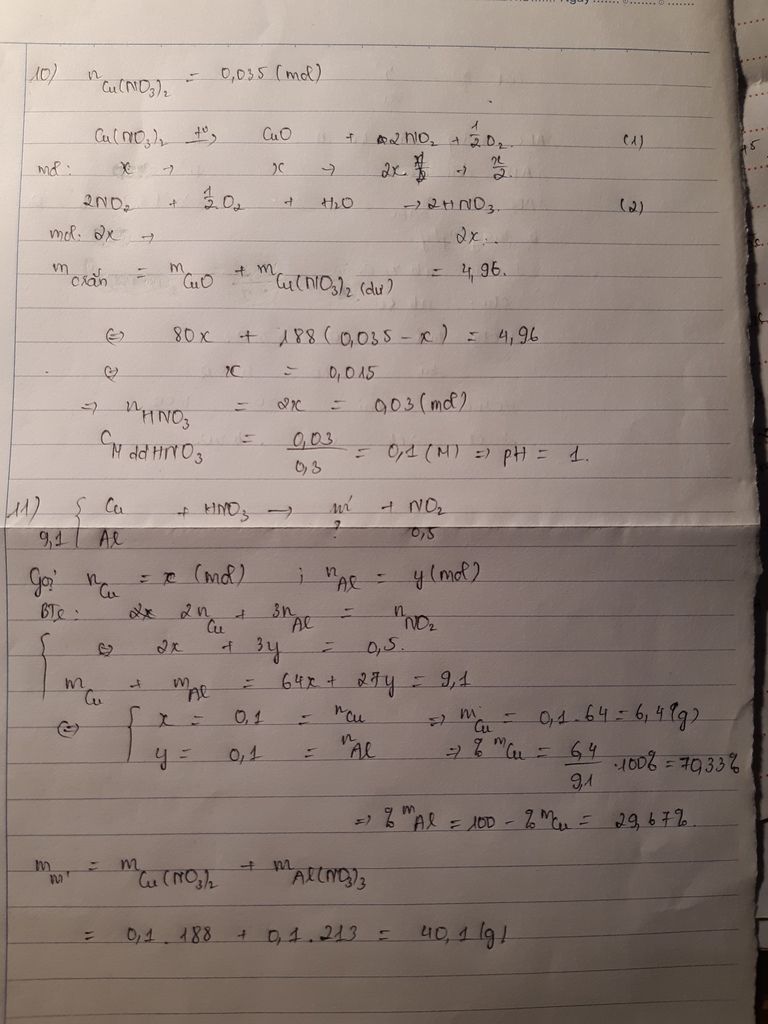 10) nCu(NO3)2 = 0,035 (mol)
Cu(NO3)2 t° → CuO + 2NO2 + 1/2 O2. (1)
mol: x → x → 2x → x/2.
2NO2 + 1/2 O2 + H2O → 2HNO3. (2)
mol: 2x → 2x.
m crắn = mCuO + mCu(NO3)2 (dư) = 4,96.
⇔ 80x + 188(0,035 - x) = 4,96
⇔ x = 0,015
⇒ nHNO3 = 2x = 0,03 (mol)
CM ddHNO3 = 0,03/0,3 = 0,1 (M) ⇒ pH = 1.
11) { Cu + HNO3 → m' + NO2
9,1 Al ? 0,5
Gọi nCu = x (mol) ; nAl = y (mol)
BTe: 2nCu + 3nAl = nNO2
{ ⇔ 2x + 3y = 0,5.
mCu + mAl = 64x + 27y = 9,1
⇔ { x = 0,1 = nCu ⇒ mCu = 0,1.64 = 6,4 (g)
y = 0,1 = nAl ⇒ % mCu = 6,4/9,1 .100% = 70,33%
⇒ % mAl = 100 - % mCu = 29,67%.
mm' = mCu(NO3)2 + mAl(NO3)3
= 0,1.188 + 0,1.213 = 40,1 (g)